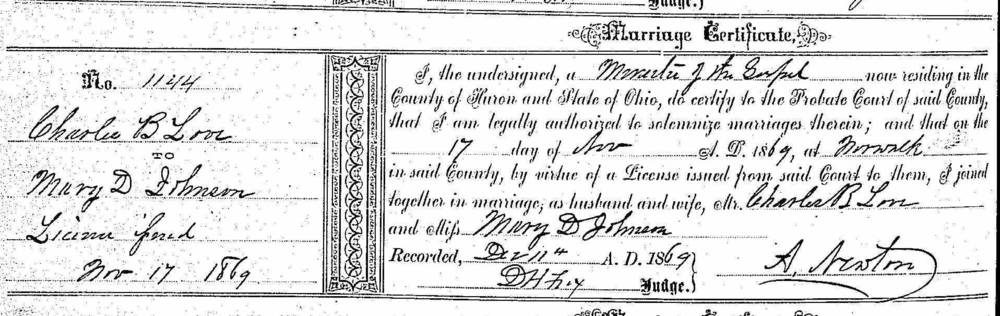 Judge.)
Marriage Certificate,
No. 1144
Charles B Love
TO
Mary D Johnson
License
Nov 17 1869
I, the undersigned, a Minister of the Gospel now residing in the
County of Huron and State of Ohio, do certify to the Probate Court of said County,
that I am legally authorized to solemnize marriages therein; and that on the
17 day of Nov A. D. 1869, at Norwalk
in said County, by virtue of a License issued from said Court to them, I joined
together in marriage, as husband and wife, Mr. Charles B Love
and Miss Mary D Johnson
Recorded, Dec A. D. 1869
Judge.
A. Newton